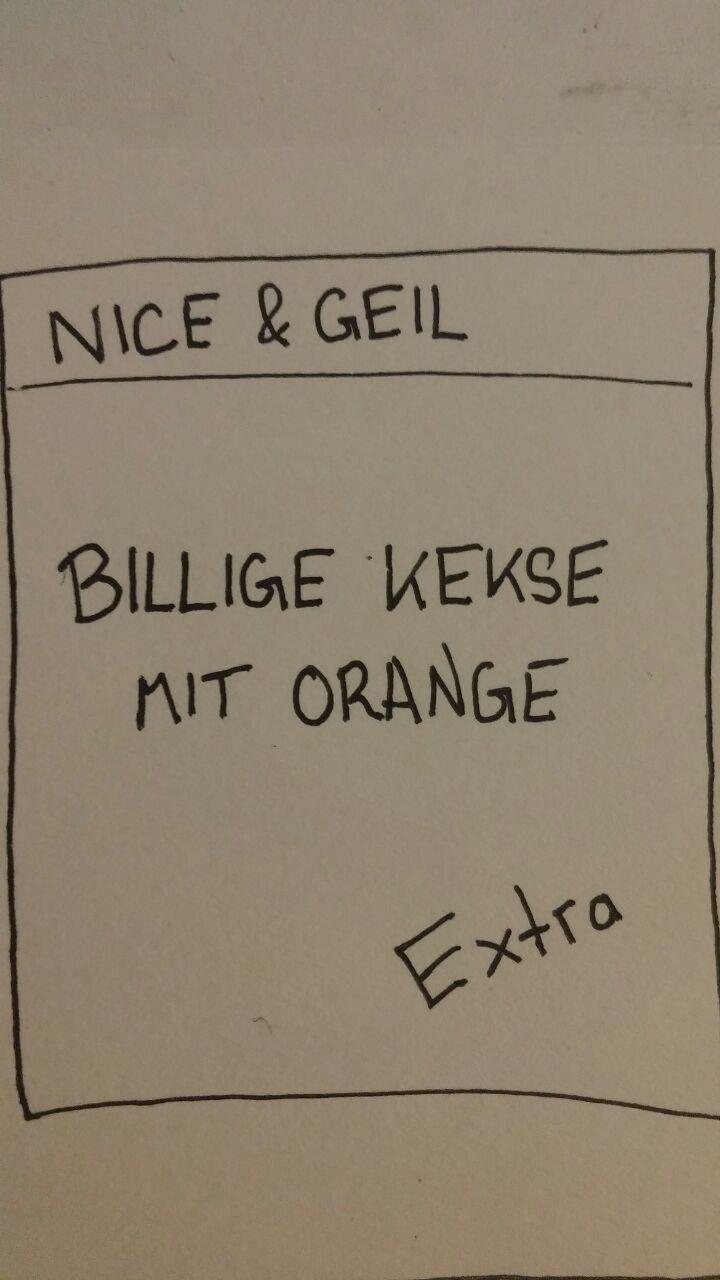 NICE & GEIL
BILLIGE KEKSE
MIT ORANGE
Extra